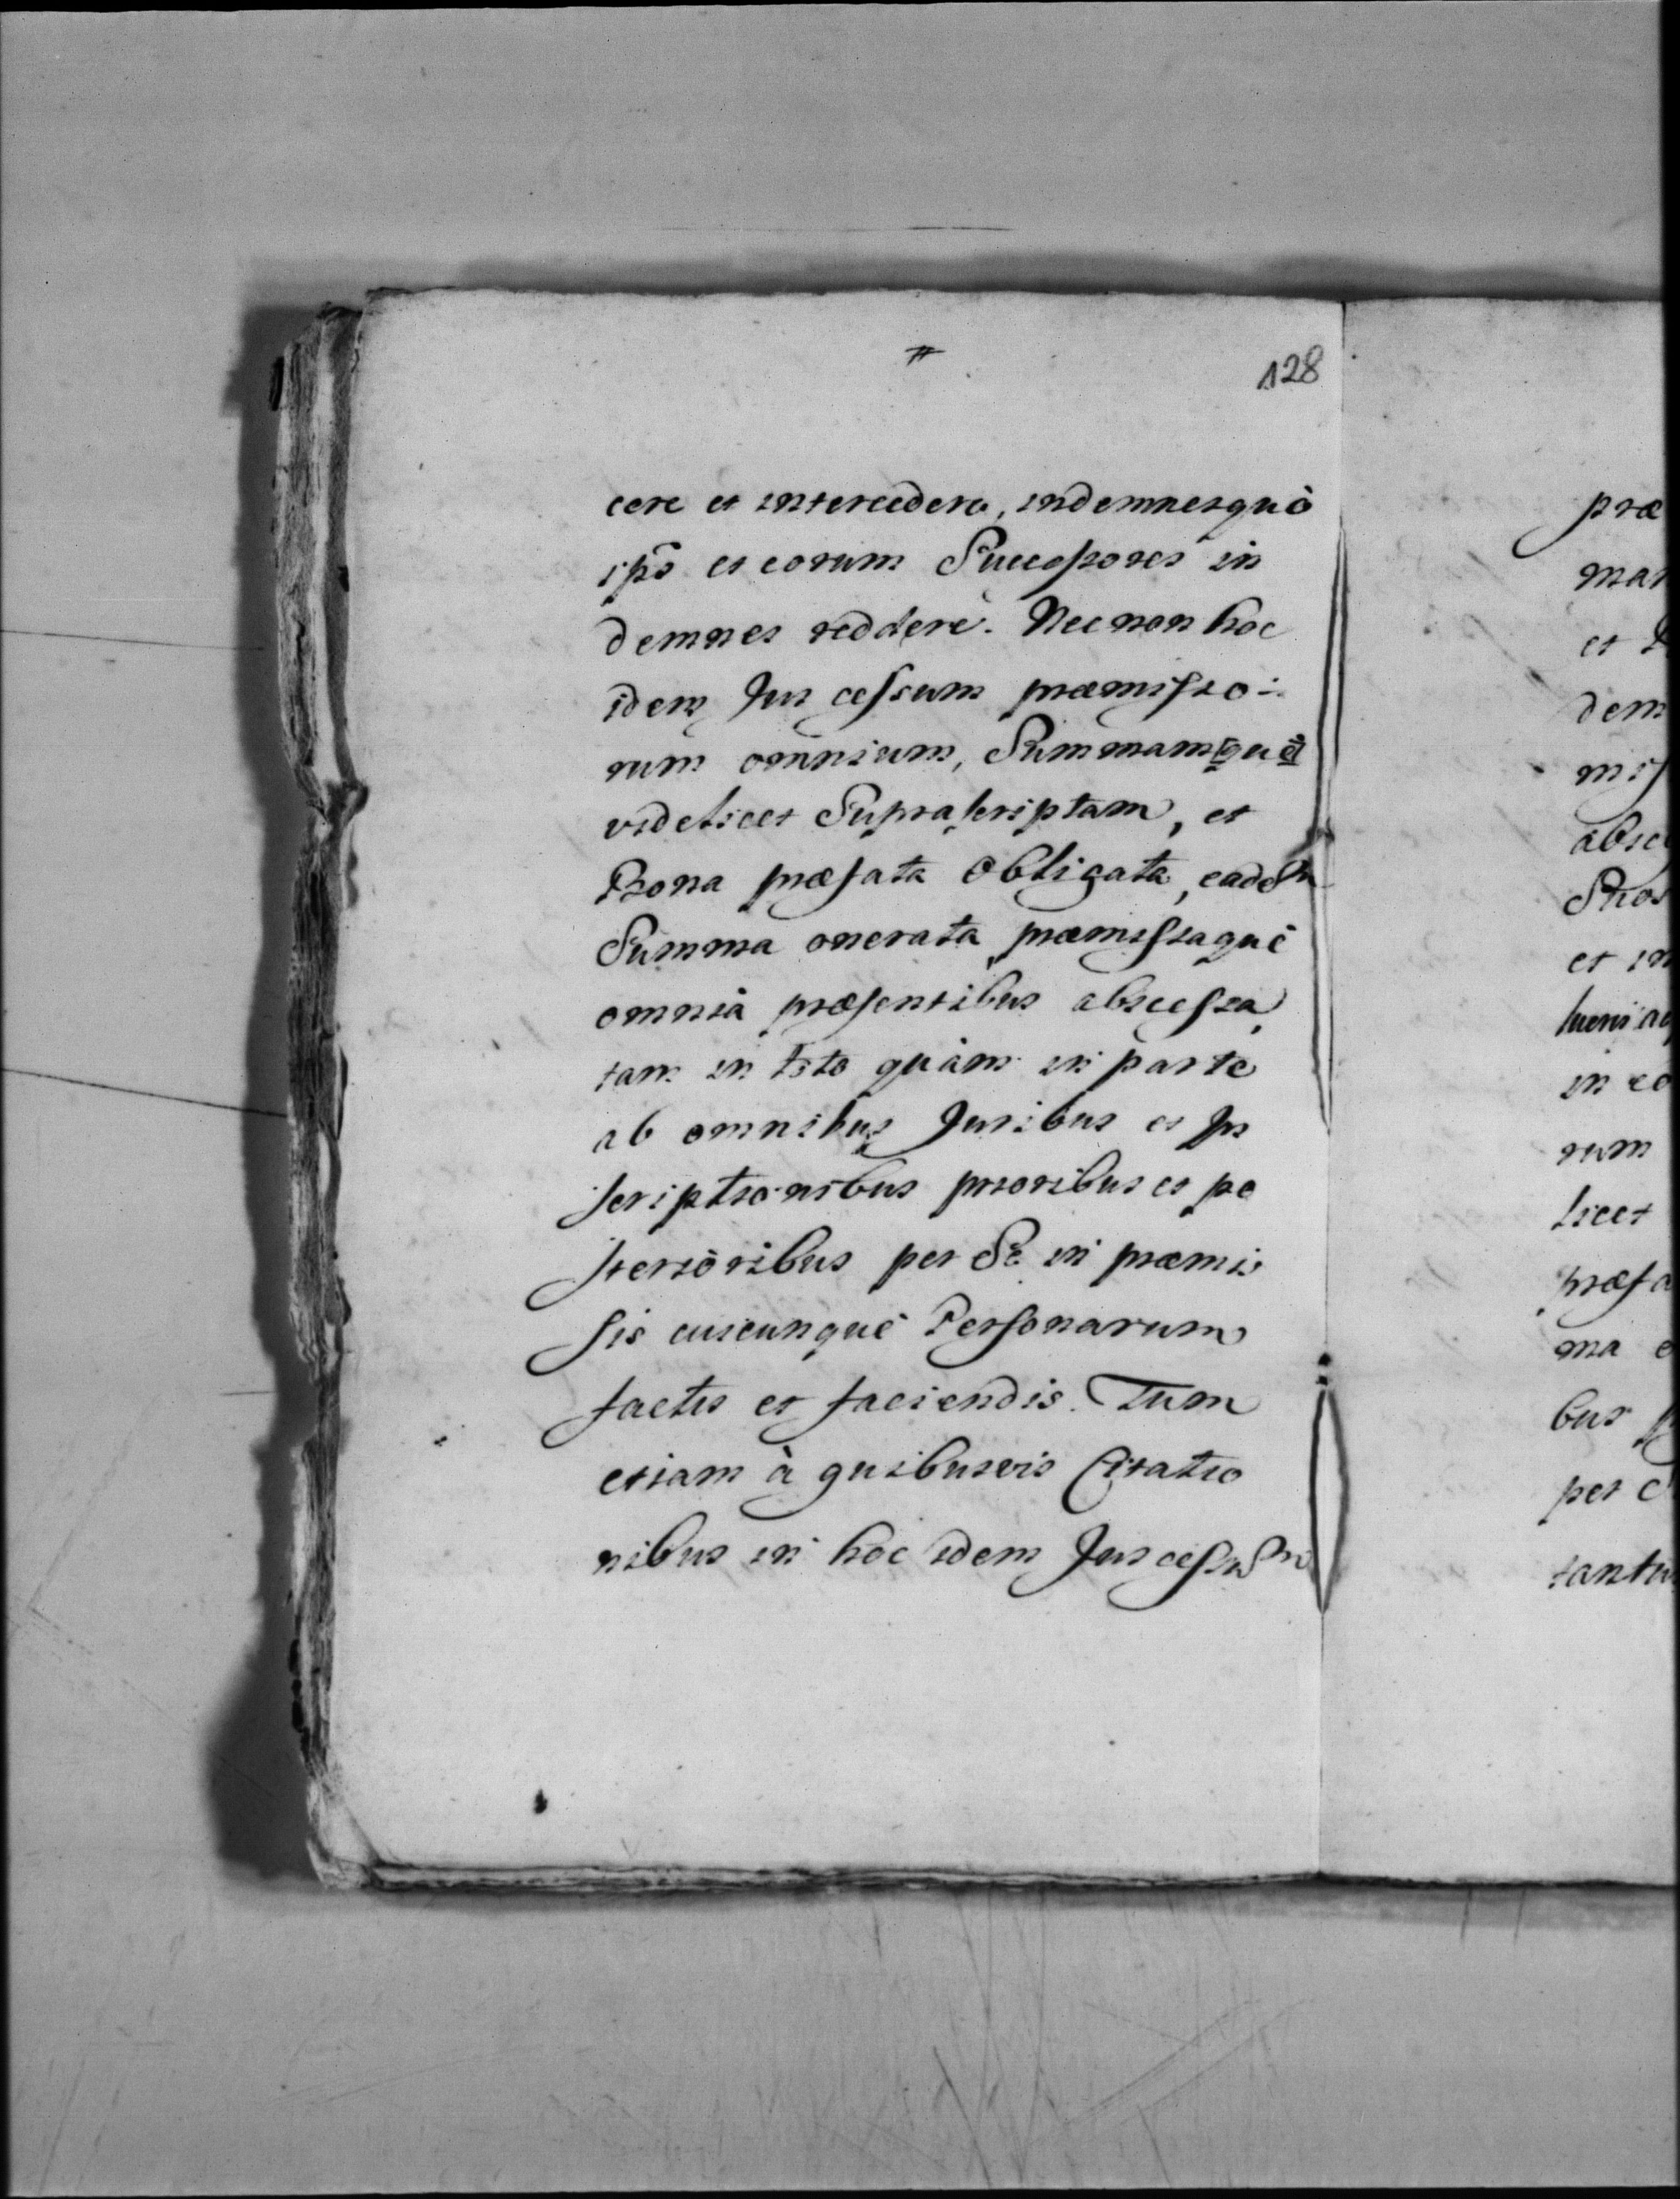 128
cere et intercedere, indemnesquè
ips̃o et eorum Successores in
demnes reddere. Nec non hoc
idem Jus cessum præmisso-
rum omnium, Summam[què]
videlicet Suprascriptam, et
Bona præfata Obligata, eadem
Summa onerata præmissaquè
omnia præsentibus abscessa
tam in toto quàm in parte
ab omnibus Juribus et In
scriptionibus prioribus et po
sterioribus per Se in præmis
sis cuicunquè Personarum
factis et faciendis. Tum
etiam à quibusvis Citatio
nibus in hoc idem Jus cessum
præ
man
et
dem
miss
absce
Suos
et in
in eo
rum
licet
præfa
ma
bus
per
tantu